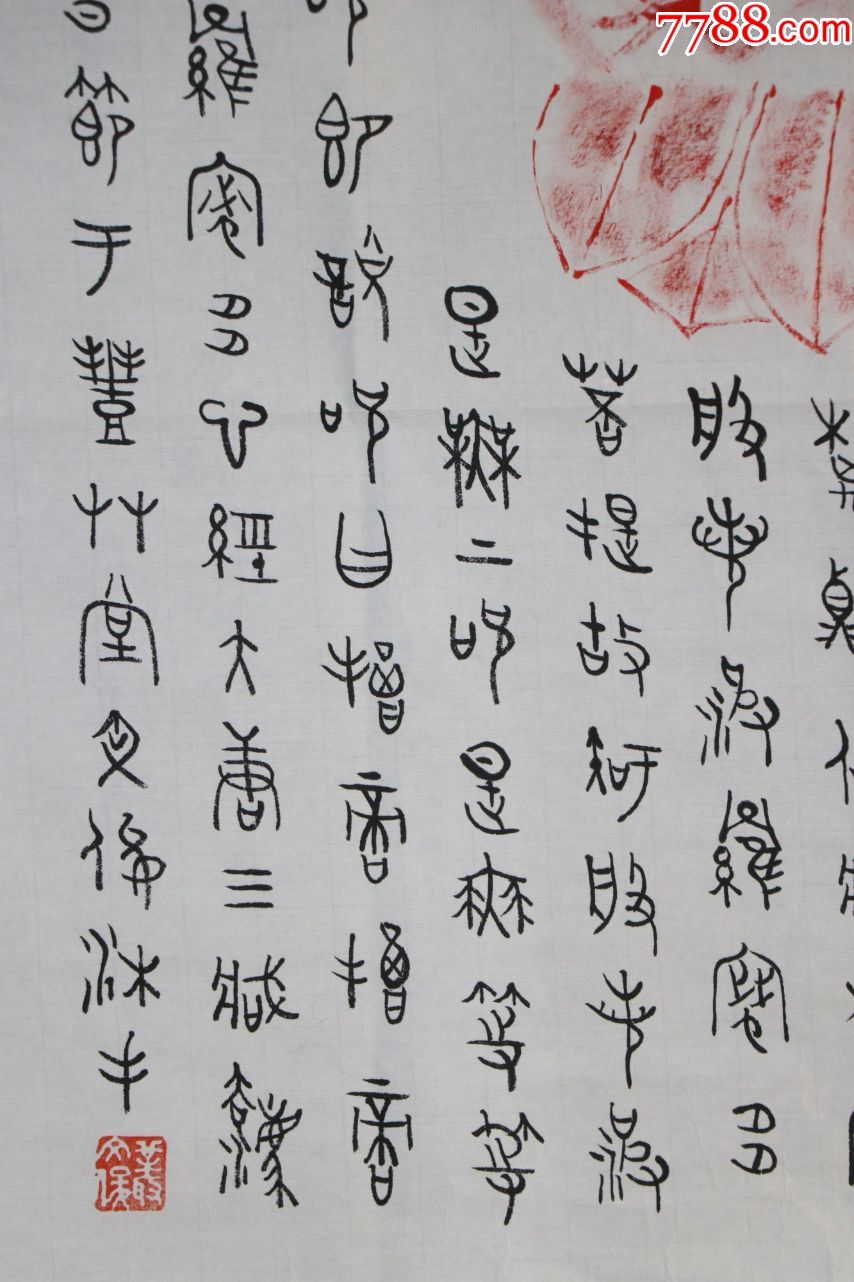 7788.com
般若波羅蜜多
菩提故知般若波
是無上咒是無等等
咒即說咒曰揭帝揭帝
羅蜜多心經大唐三藏
日節于豐艸堂沐手